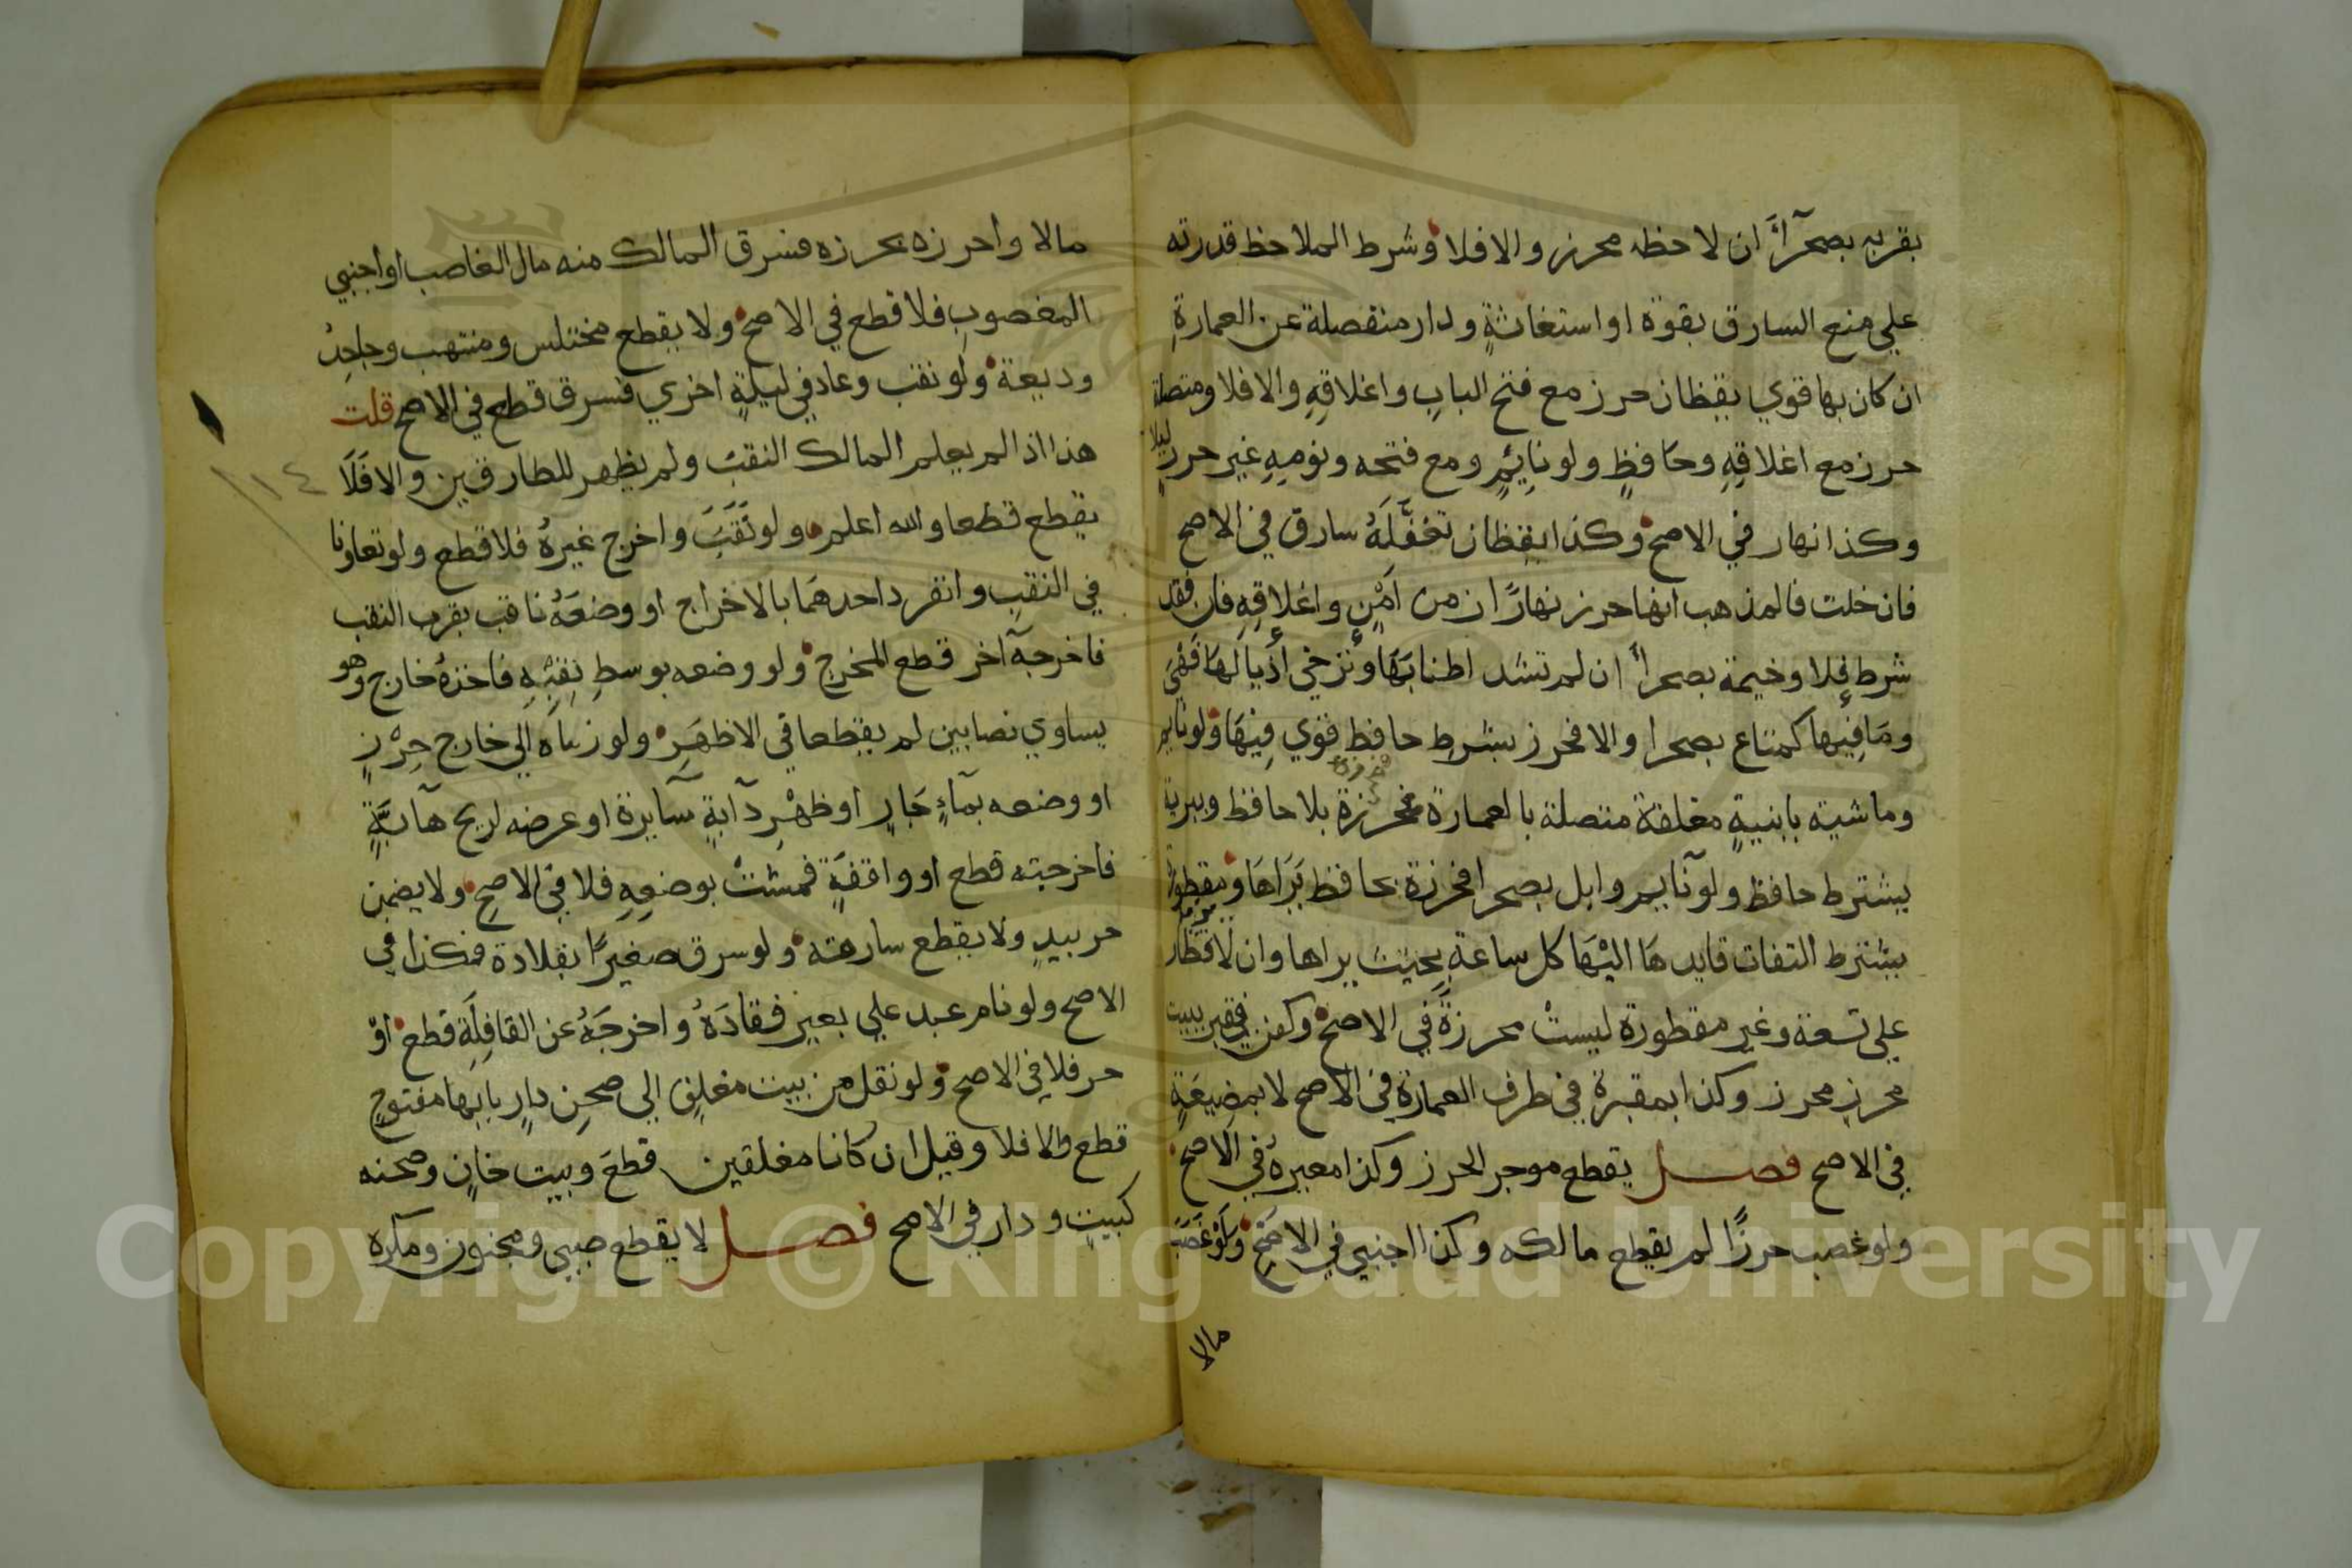 بقربه بصحرآءً ان لاحظه محرز والا فلا وشرط الملاحظ قدرته
علي منع السارق بقوة او استغاثةٍ ودار منفصلة عن العمارةِ
ان كان بها قوي يقظان حرز مع فتح البابِ واغلاقِهِ والا فلا ومتصلة
حرز مع اغلاقِهِ وحَافظٍ ولو نايِئمٍ ومع فتحه ونومِهِ غير حرزٍ ليلا
وكذا نهار في الاصح وكذا يقظان تغفَّلَهُ سارق في الاصح
فان خلت فالمذهب انها حرز نهارًا زمن اَمْنٍ واغلاقِهِ فان فقد
شرط فلا وخيمة بصحراءً ان لم تشد اطنابَهَا وتُرخي أذيالَهَا فهيَ
ومَا فِيها كمتاع بصحرا والا فحرز بشرط حافظ قوي فِيهَا ولو نايم
وماشية بابنيةٍ مغلقة متصلة بالعمارة محرزة بلا حافظ وببرية
يشترط حافظ ولو نآيم وابل بصحرا محرزة بحافظ يَرَاهَا ومقطورة
يشترط التفات قايدهَا اليْهَا كل ساعةٍ بحيث يراها وان لا يزيد قطار
علي تسعة وغير مقطورة ليستْ محرزةً في الاصح وكفن في قبر ببيت
محرزٍ محرز وكذا بمقبرة في طرف العمارة في الاصح لا بمضيعَةٍ
في الاصح فصل يقطع موجر الحرز وكذا معيرهُ في الاصح
ولو غصب حرزًا لم يقطع مالكه وكذا اجنبي في الاصَحِّ ولَوْ غَصَبَ
مالا
مالا واحرزه بحرزه فسرق المالك منه مال الغاصب او اجنبي
المغصوبِ فلا قطع في الاصح ولا يقطع مختلس ومنتهب وجاحِدُ
وديعة ولو نقب وعاد في ليلةٍ اخري فسرق قطع في الاصح قلت
هذا اذا لم يعلم المالك النقبَ ولم يظهر للطارقين والا فَلَا
يقطع قطعا والله اعلم ولو نَقَبَ واخرج غيرهُ فلا قطع ولو تعاونا
في النقبِ وانفرد احدهمَا بالاخراج او وضعَهُ ناقب بقرب النقب
فاخرجه آخر قطع المخرج ولو وضعه بوسطِ نقبِهِ فاخذهُ خارج وهو
يساوي نصابين لم يقطعا في الاظهَرِ ولو رماه الي خارج حِرْزٍ
او وضعه بمآءٍ جَارٍ او ظهْرِ دآبةٍ سآيرة او عرضه لريح هآبَّةٍ
فاخرجته قطع او واقفةٍ فمشتْ بوضعِهِ فلا في الاصحِ ولا يضمن
حر بيدٍ ولا يقطع سارقه ولو سرق صغيرًا بقلادة فكذا في
الاصح ولو نام عبد علي بعيرٍ فقادَهُ واخرجَهُ عن القافِلَةِ قطع اوْ
حر فلا في الاصح ولو نقل من بيت مغلق الي صحنِ دارٍ بابها مفتوح
قطع والا فلا وقيل ان كانا مغلقين قطعَ وبيت خانٍ وصحنه
كبيتٍ ودار في الاصح فصل لا يقطع صبي ومجنون ومكره
١٤
Copyright © King Saud University